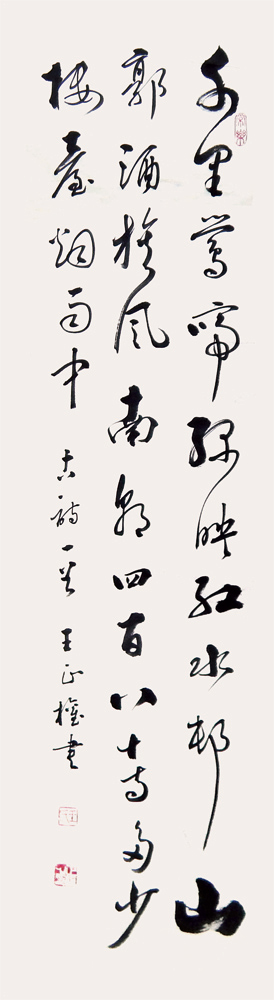 千里鶯啼綠映紅水邨山
郭酒旗風南朝四百八十寺多少
樓臺烟雨中 古詩一首 王正權書